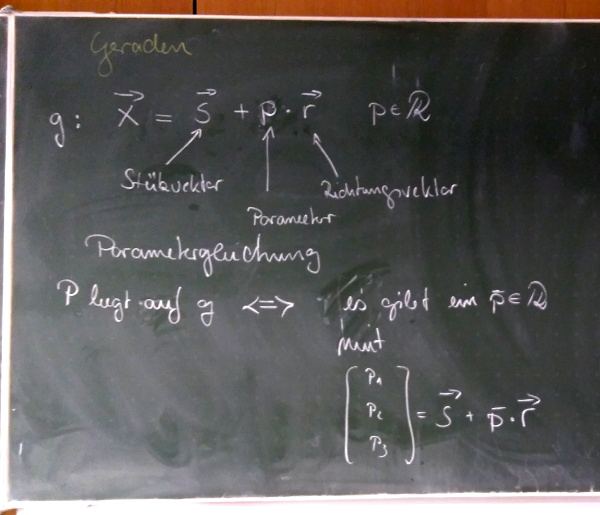 Geraden
g: X⃗ = S⃗ + p · r⃗ p ∈ ℝ
Stützvektor
Richtungsvektor
Parameter
Parametergleichung
P liegt auf g <=> es gibt ein p̄ ∈ ℝ
mit
(p₁ p₂ p₃) = S⃗ + p̄ · r⃗